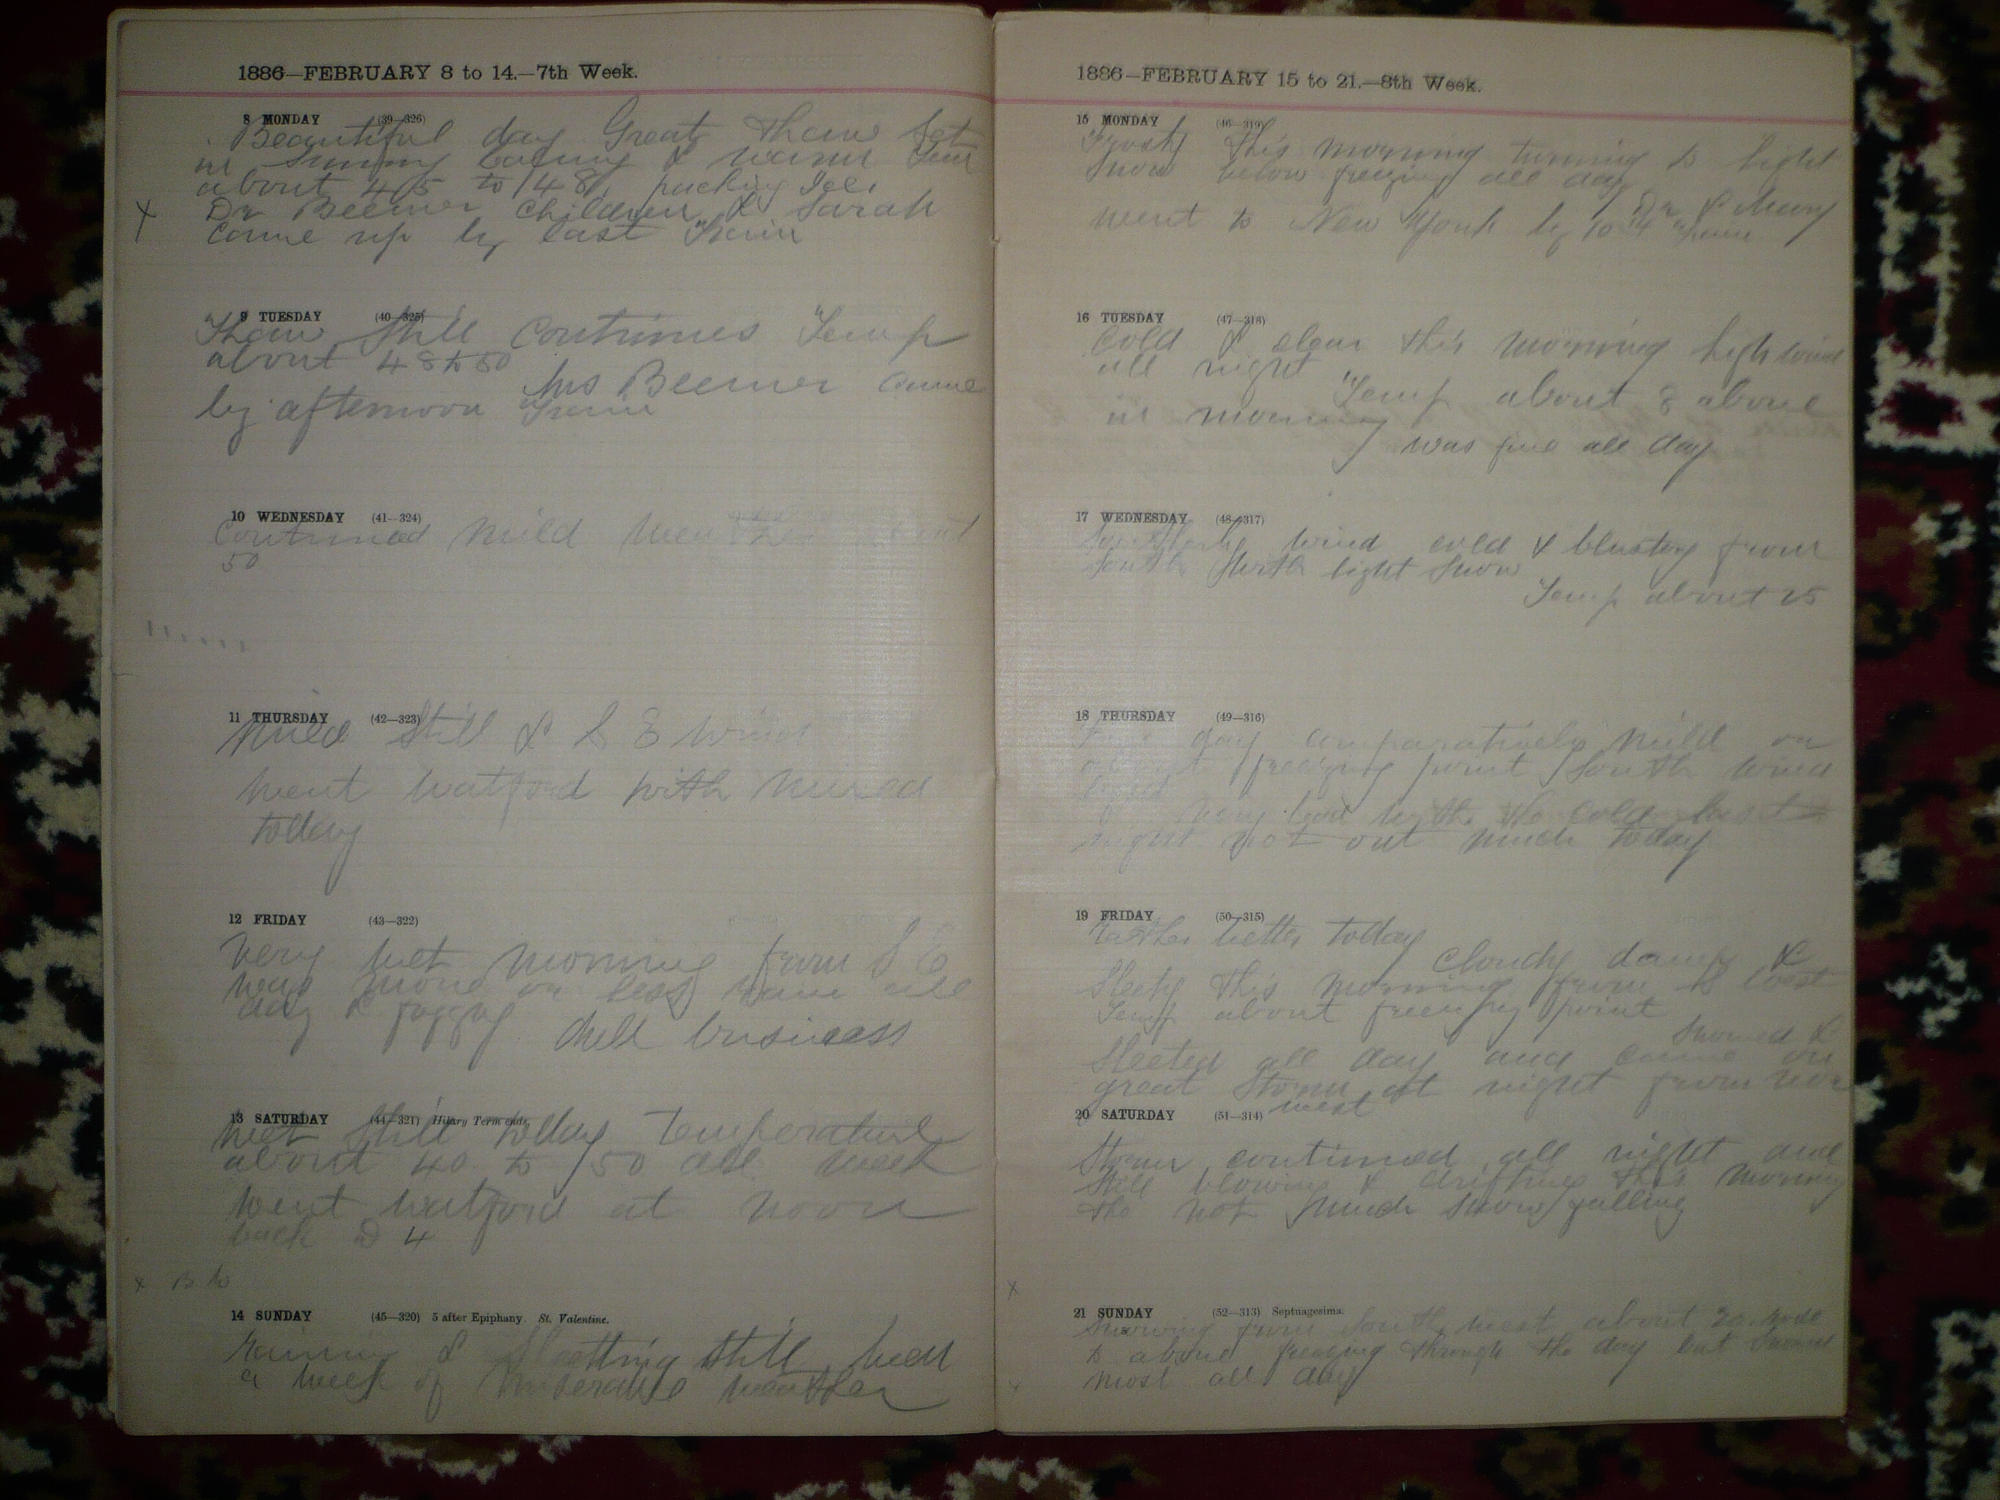 1886—FEBRUARY 8 to 14.—7th Week.
8 MONDAY (39—326)
Beautiful day Great Thaw Set
in Sunny & warm Tem
about 45 to 48 packing Ice
x Dr Beemer Children & Sarah
came up by last Train
9 TUESDAY (40—325)
Thaw Still Continues Temp
about 48 to 50
Mrs Beemer came
by afternoon Train
10 WEDNESDAY (41—324)
Continued Mild Weather about
50
11 THURSDAY (42—323)
Mild Still & S E Wind
went Watford with
today
12 FRIDAY (43—322)
very wet morning from S E
was more or less rain all
day & foggy
dull business
13 SATURDAY (44—321) Hilary Term ends.
wet Still today Temperature
about 40 to 50 all week
went Watford at noon
back 4
x
14 SUNDAY (45—320) 5 after Epiphany. St. Valentine.
Raining & Sleetting still been
a week of Miserable weather
1886—FEBRUARY 15 to 21.—8th Week.
15 MONDAY (46—319)
Frosty this morning turning to light
Snow below freezing all day
Dr & Mary
went to New York by 10 Train
16 TUESDAY (47—318)
Cold & clear this morning high wind
all night
Temp about 8 above
in morning
was fine all day
17 WEDNESDAY (48—317)
wind cold & blustery from
South North light Snow
Temp about 25
18 THURSDAY (49—316)
Fine day comparatively mild on
about freezing point South Wind
very bad with the cold last
night not out much today
19 FRIDAY (50—315)
rather better today
Cloudy damp &
Sleety this morning from East
Temp about freezing point
Snowed &
Sleeted all day and came on
great Storm at night from Nor
west
20 SATURDAY (51—314)
Storm continued all night and
Still blowing & drifting this morning
tho not much snow falling
x
21 SUNDAY (52—313) Septuagesima.
Snowing from South west about 20 rose
to above freezing through the day but Snowed
most all day